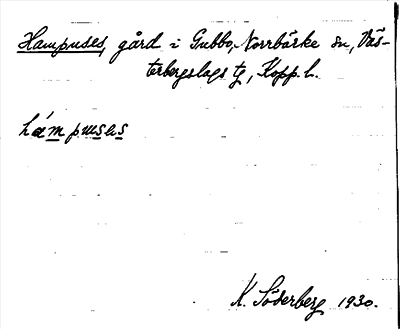 Hampuses, gård i Gubbo, Norrbärke sn, Väs-
terbergslags tg, Kopp. l.
hampuses
K. Söderberg 1930.